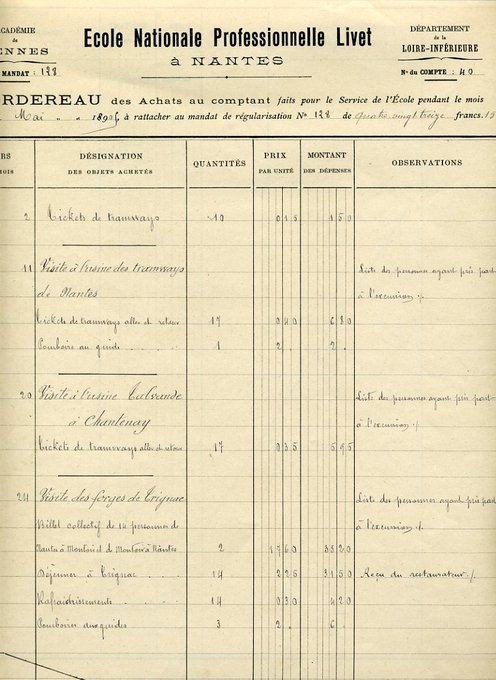 CADÉMIE
de
ENNES
Ecole Nationale Professionnelle Livet
à NANTES
DÉPARTEMENT
de la
LOIRE-INFÉRIEURE
MANDAT : 128
N° du COMPTE : 40
RDEREAU des Achats au comptant faits pour le Service de l'École pendant le mois
Mai " " 189 à rattacher au mandat de régularisation N° 128 de quatre vingt treize francs. 15
RS
MOIS
DÉSIGNATION
DES OBJETS ACHETÉS
QUANTITÉS
PRIX
PAR UNITÉ
MONTANT
DES DÉPENSES
OBSERVATIONS
2 Tickets de tramways 10 0 15 1 50
11 Visite à l'usine des tramways
de Nantes
Liste des personnes ayant pris part
à l'excursion
Tickets de tramways aller et retour 17 0 40 6 80
Pourboire au guide 1 2 2
20 Visite à l'usine
à Chantenay
Liste des personnes ayant pris part
à l'excursion
Tickets de tramways aller et retour 17 0 35 5 95
24 Visite des forges de Trignac
Liste des personnes ayant pris part
à l'excursion
Billet collectif de 14 personnes de
Nantes à Montoir et de Montoir à Nantes 2 17 60 35 20
Déjeuner à Trignac 14 2 25 31 50 Reçu du restaurateur
Rafraichissements 14 0 30 4 20
Pourboires aux guides 3 2 6